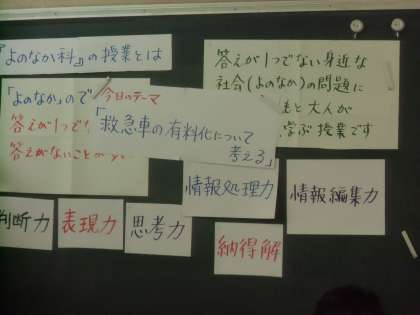 『よのなか科』の授業とは
「よのなか」ので
答えが1つで
答えがないことが
今日のテーマ
「救急車の有料化について
考える」
答えが1つでない身近な
社会(よのなか)の問題に
と大人が
学ぶ授業です
情報処理力
情報編集力
判断力
表現力
思考力
納得解